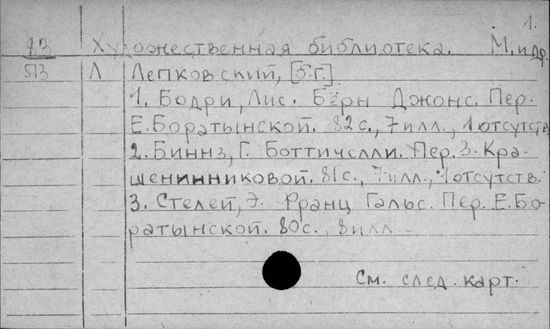 1.
82 Художественная библиотека. М. и др.
513 Л Лепковский, [б.г.]
1. Бодри, Лис. Бёрн Джонс. Пер.
Е. Боратынской. 82 с., 7 илл., 1 отсутств.
2. Биннз, Г. Боттичелли. Пер. З. Кра-
шенинниковой. 81 с., 7 илл., 1 отсутств.
3. Стелей, Э. Франц Гальс. Пер. Е. Бо-
ратынской. 80 с., 8 илл.
См. след. карт.